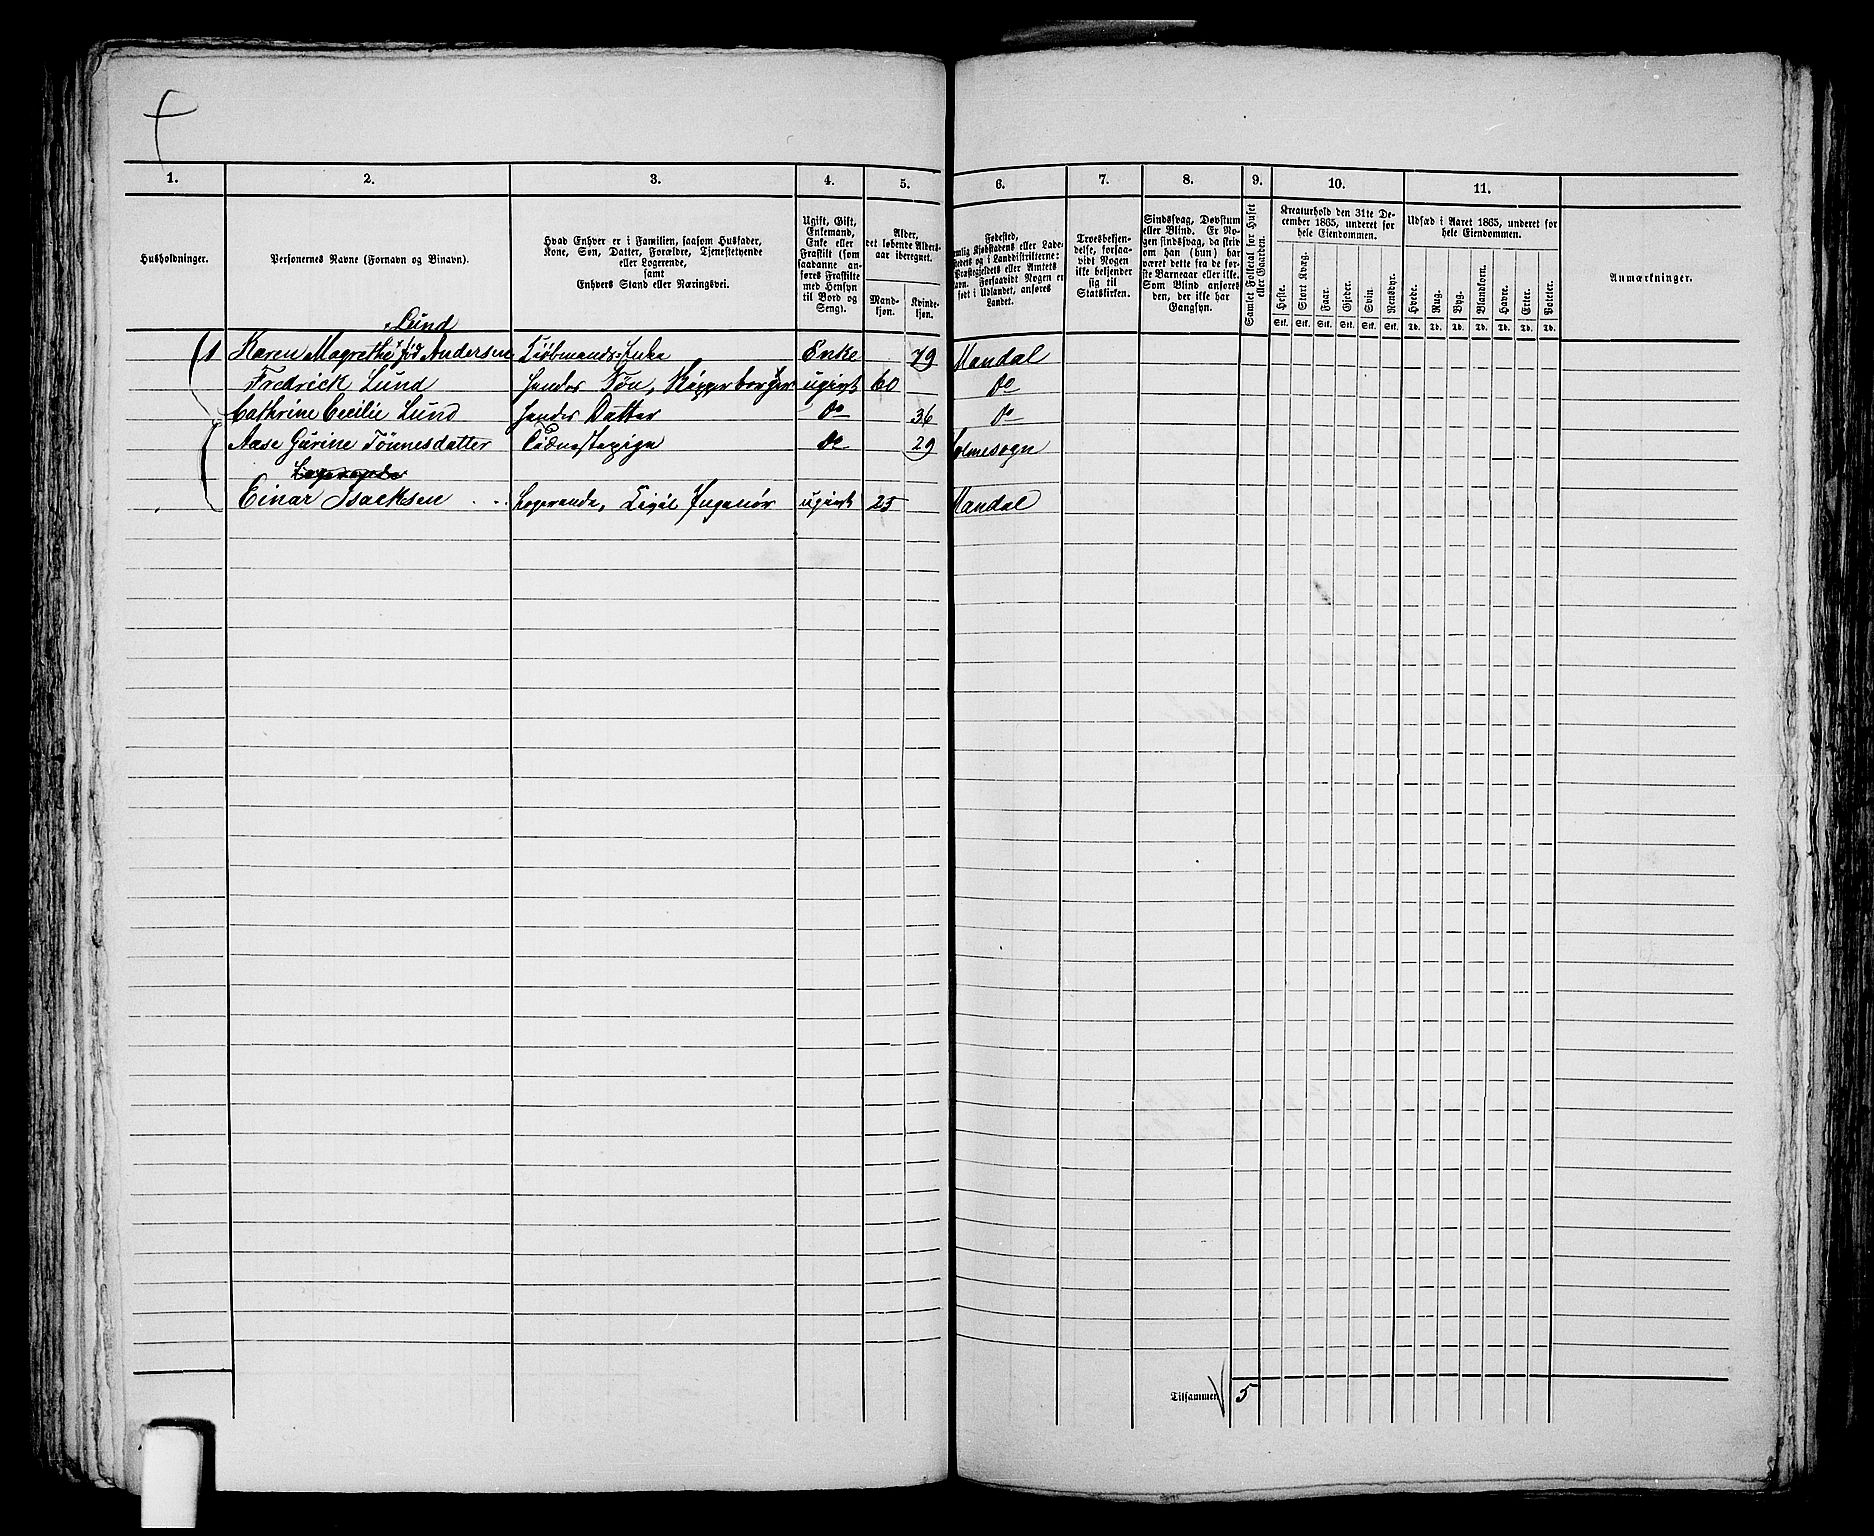 1. 2. 3. 4. 5. 6. 7. 8. 9. 10. 11.
Husholdninger.
Personernes Navne (Fornavn og Binavn).
Hvad Enhver er i Familien, saasom Husfader,
Kone, Søn, Datter, Forældre, Tjenestetyende
eller Logerende,
samt
Enhvers Stand eller Næringsvei.
Ugift, Gift,
Enkemand,
Enke eller
Fraskilt (som
saadanne an-
føres Fraskilte
med Hensyn
til Bord og
Seng).
Alder,
det løbende Alders-
aar iberegnet.
Mand-
kjøn.
Kvinde-
kjøn.
Fødested,
nemlig Kjøbstadens eller Lade-
stedets og i Landdistrikterne:
Præstegjeldets eller Amtets
Navn. Forsaavidt Nogen er
født i Udlandet, anføres
Landet.
Troesbekjen-
delse, forsaa-
vidt Nogen
ikke bekjender
sig til
Statskirken.
Sindssvag, Døvstum
eller Blind. Er No-
gen sindssvag, da skriv
om han (hun) har
været dette fra de før-
ste Barneaar eller ikke.
Som Blind anføres
den, der ikke har
Gangsyn.
Samlet Folketal for Huset
eller Gaarden.
Kreaturhold den 31te De-
cember 1865, underet for
hele Eiendommen.
Heste. Stort Kvæg. Faar. Gjeder. Svin. Rensdyr.
Stk. Stk. Stk. Stk. Stk. Stk.
Udsæd i Aaret 1865, underet for
hele Eiendommen.
Hvede. Rug. Byg. Blandkorn. Havre. Erter. Poteter.
Td. Td. Td. Td. Td. Td. Td.
Anmærkninger.
Lund
1 Karen Magrethe fød Andersen Kiøbmands-Enke Enke 79 Mandal
Fredrick Lund Hendes Søn, Skipperborger ugivt 60 do
Cathrine Cecilie Lund Hendes Datter do 36 do
Aase Gurine Tönnesdatter Tiænestepige do 29 Holmesogn
Logerende
Einar Isacksen Logerende, Civil Ingeniør ugivt 25 Mandal
Tilsammen 5